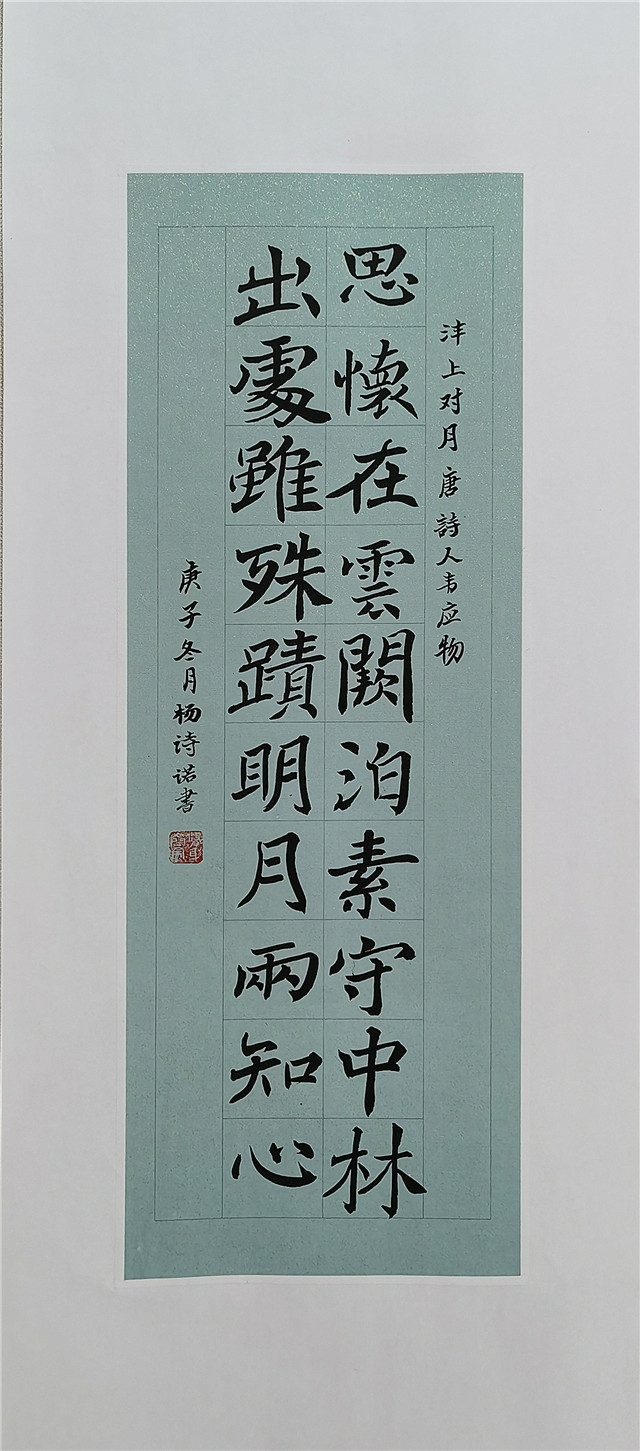 沣上对月唐詩人韦应物
思懷在雲闕泊素守中林
出處雖殊蹟明月兩知心
庚子冬月杨诗诺書